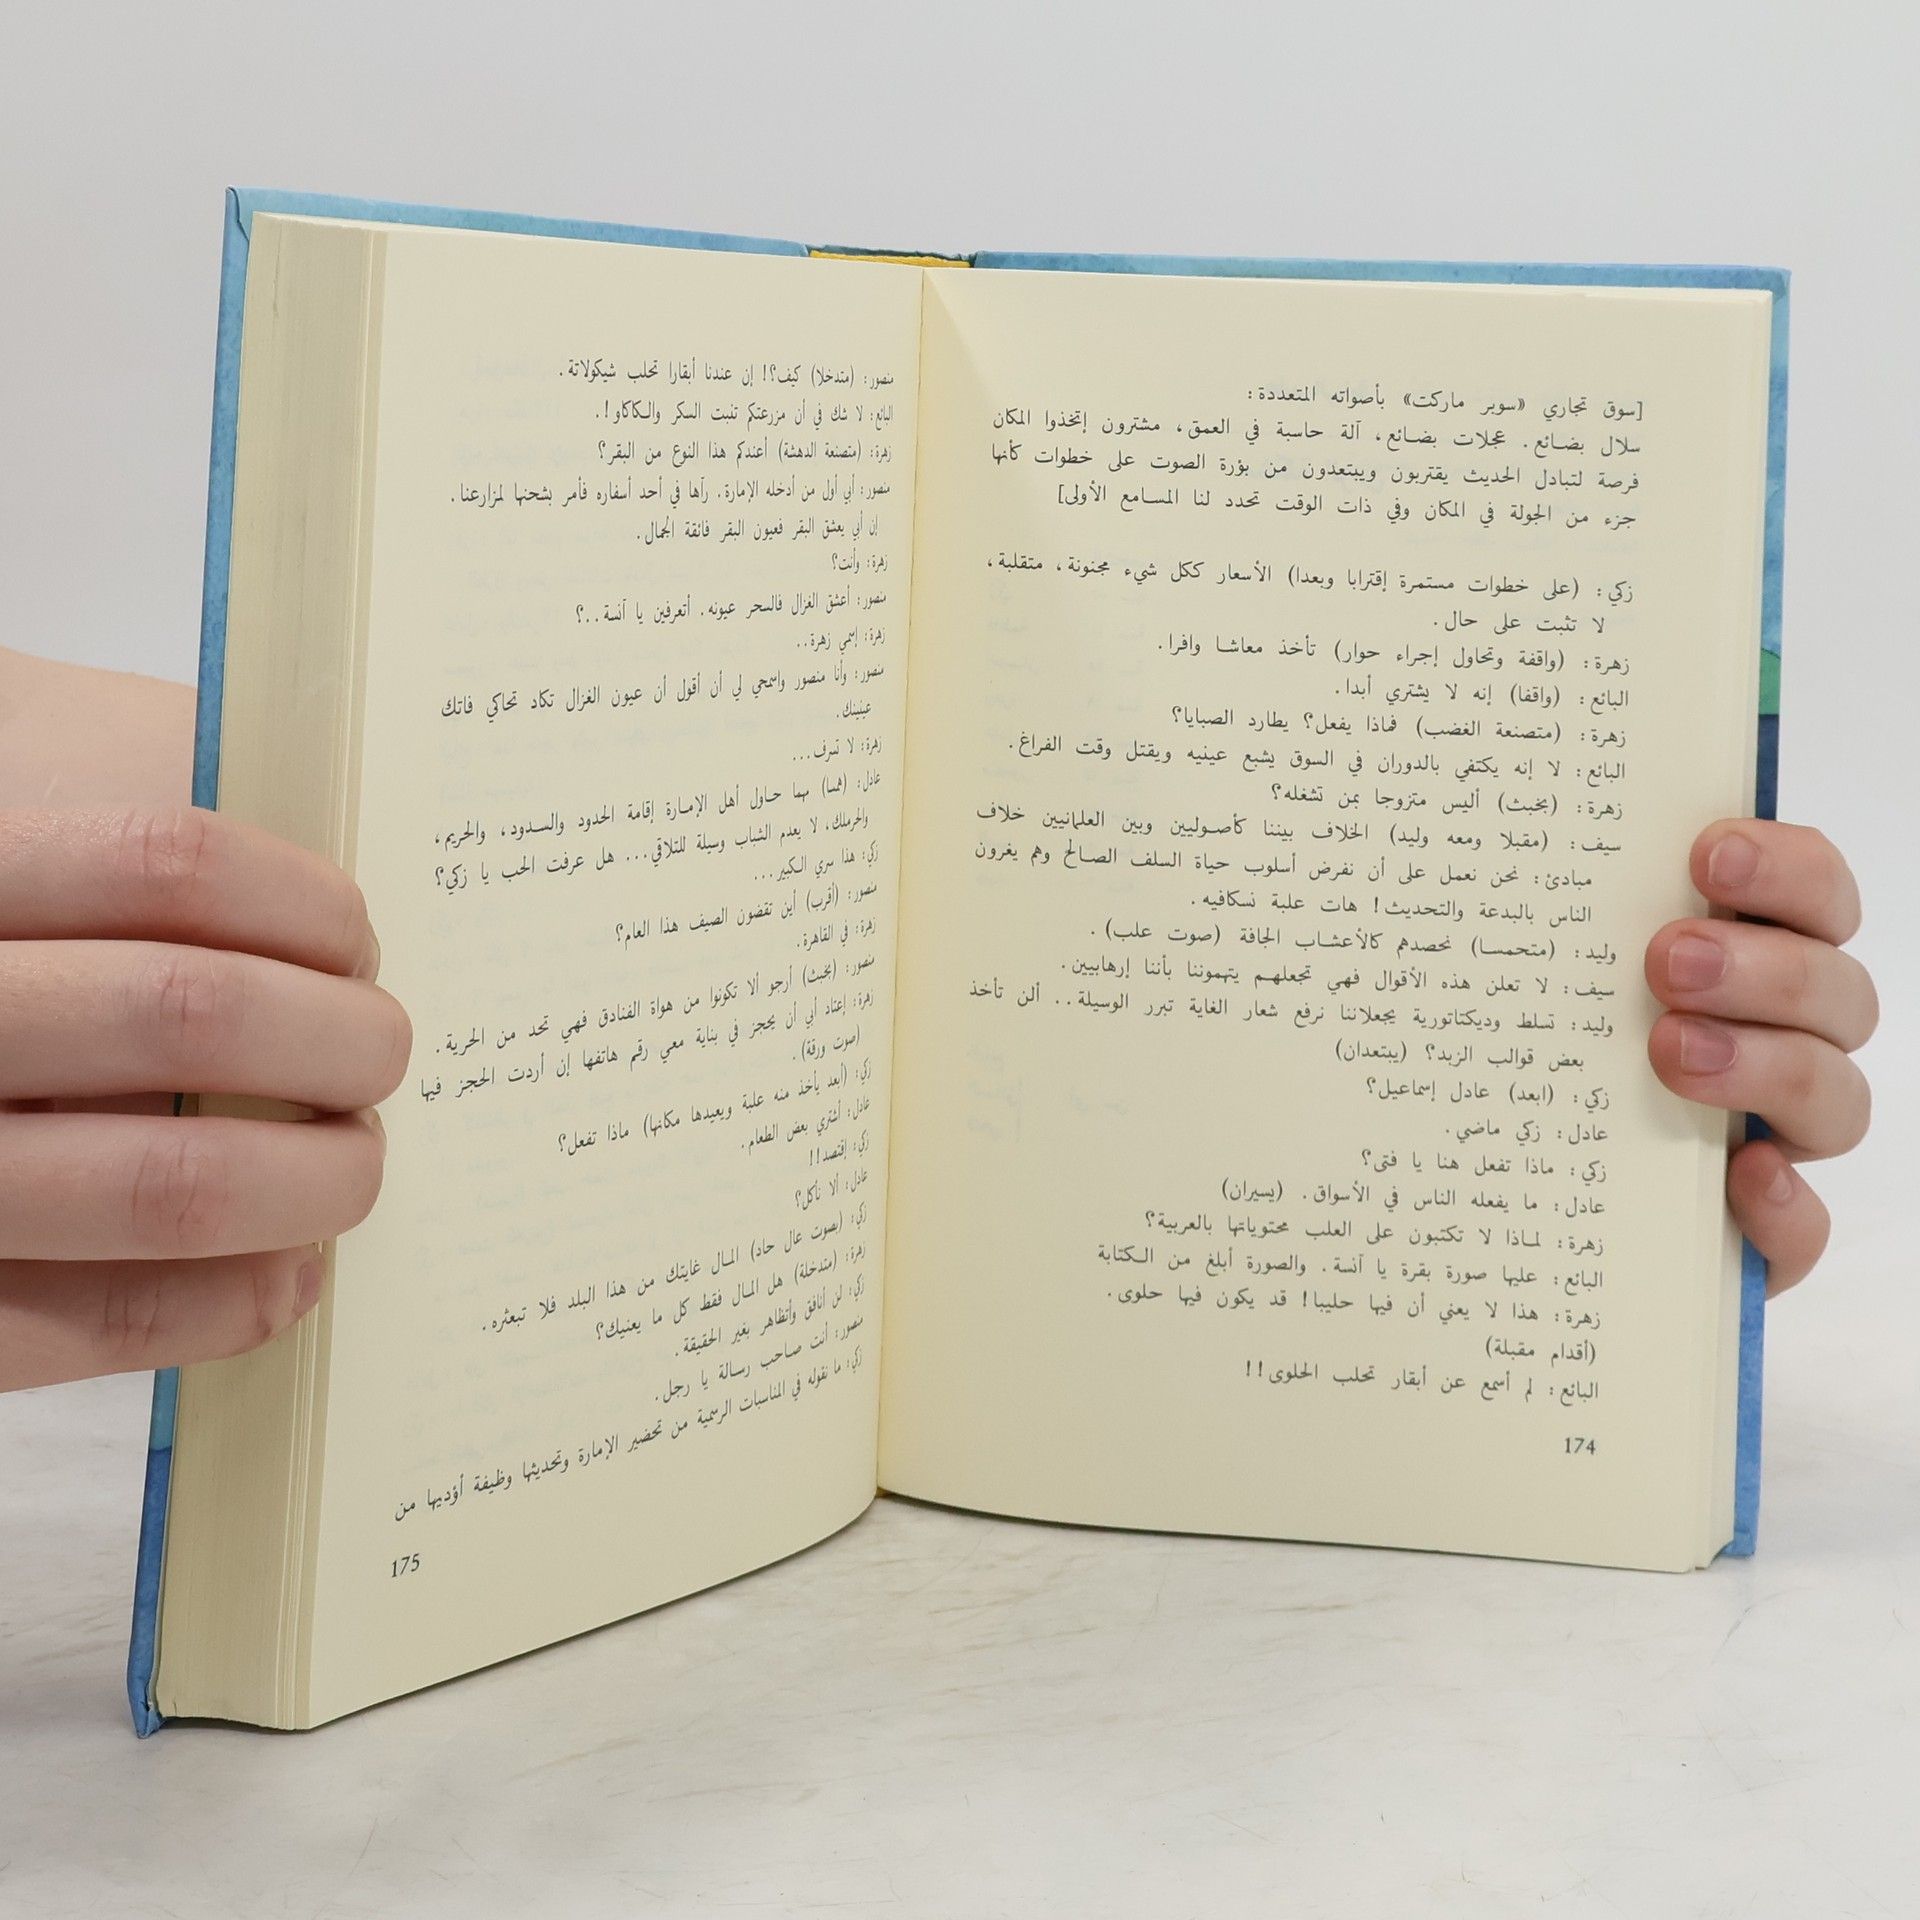 [سوق تجاري «سوبر ماركت» بأصواته المتعددة:
سلال بضائع. عجلات بضائع، آلة حاسبة في العمق، مشترون إتخذوا المكان
فرصة لتبادل الحديث يقتربون ويبتعدون من بؤرة الصوت على خطوات كأنها
جزء من الجولة في المكان وفي ذات الوقت تحدد لنا المسامع الأولى]
زكي: (على خطوات مستمرة إقترابا وبعدا) الأسعار ككل شيء مجنونة، متقلبة،
لا تثبت على حال.
زهرة: (واقفة وتحاول إجراء حوار) تأخذ معاشا وافرا.
البائع: (واقفا) إنه لا يشتري أبدا.
زهرة: (متصنعة الغضب) فماذا يفعل؟ يطارد الصبايا؟
البائع: لا إنه يكتفي بالدوران في السوق يشبع عينيه ويقتل وقت الفراغ.
زهرة: (بخبث) أليس متزوجا بمن تشغله؟
سيف: (مقبلا ومعه وليد) الخلاف بيننا كأصوليين وبين العلمانيين خلاف
مبادئ: نحن نعمل على أن نفرض أسلوب حياة السلف الصالح وهم يغرون
الناس بالبدعة والتحديث! هات علبة نسكافيه.
وليد: (متحمسا) نحصدهم كالأعشاب الجافة (صوت علب).
سيف: لا تعلن هذه الأقوال فهي تجعلهم يتهموننا بأننا إرهابيين.
وليد: تسلط وديكتاتورية يجعلاننا نرفع شعار الغاية تبرر الوسيلة.. ألن تأخذ
بعض قوالب الزبد؟ (يبتعدان)
زكي: (ابعد) عادل إسماعيل؟
عادل: زكي ماضي.
زكي: ماذا تفعل هنا يا فتى؟
عادل: ما يفعله الناس في الأسواق. (يسيران)
زهرة: لماذا لا تكتبون على العلب محتوياتها بالعربية؟
البائع: عليها صورة بقرة يا آنسة. والصورة أبلغ من الكتابة
زهرة: هذا لا يعني أن فيها حليبا! قد يكون فيها حلوى.
(أقدام مقبلة)
البائع: لم أسمع عن أبقار تحلب الحلوى!!
174
منصور: (متدخلا) كيف؟! إن عندنا أبقارا تحلب شيكولاتة.
البائع: لا شك في أن مزرعتكم تنبت السكر والكاكاو!.
زهرة: (متصنعة الدهشة) أعندكم هذا النوع من البقر؟
منصور: أبي أول من أدخله الإمارة. رآها في أحد أسفاره فأمر بشحنها لمزارعنا.
إن أبي يعشق البقر فعيون البقر فائقة الجمال.
زهرة: وأنت؟
منصور: أعشق الغزال فالسحر عيونه. أتعرفين يا آنسة..؟
زهرة: إسمي زهرة..
منصور: وأنا منصور واسمحي لي أن أقول أن عيون الغزال تكاد تحاكي فاتك
عينينك.
زهرة: لا تسرف...
عادل: (همسا) مهما حاول أهل الإمارة إقامة الحدود والسدود، والحريم،
والحرملك، لا يعدم الشباب وسيلة للتلاقي... هل عرفت الحب يا زكي؟
زكي: هذا سري الكبير...
منصور: (أقرب) أين تقضون الصيف هذا العام؟
زهرة: في القاهرة.
منصور: (بخبث) أرجو ألا تكونوا من هواة الفنادق فهي تحد من الحرية.
زهرة: إعتاد أبي أن يحجز في بناية معي رقم هاتفها إن أردت الحجز فيها
(صوت ورقة).
زكي: (أبعد يأخذ منه علبة ويعيدها مكانها) ماذا تفعل؟
عادل: أشتري بعض الطعام.
زكي: إقتصد!!
عادل: ألا نأكل؟
زكي: (بصوت عال حاد) المال غايتك من هذا البلد فلا تبعثره.
زهرة: (متدخلة) هل المال فقط كل ما يعنيك؟
زكي: لن أنافق وأتظاهر بغير الحقيقة.
منصور: أنت صاحب رسالة يا رجل.
زكي: ما نقوله في المناسبات الرسمية من تحضير الإمارة وتحديثها وظيفة أؤديها من
175